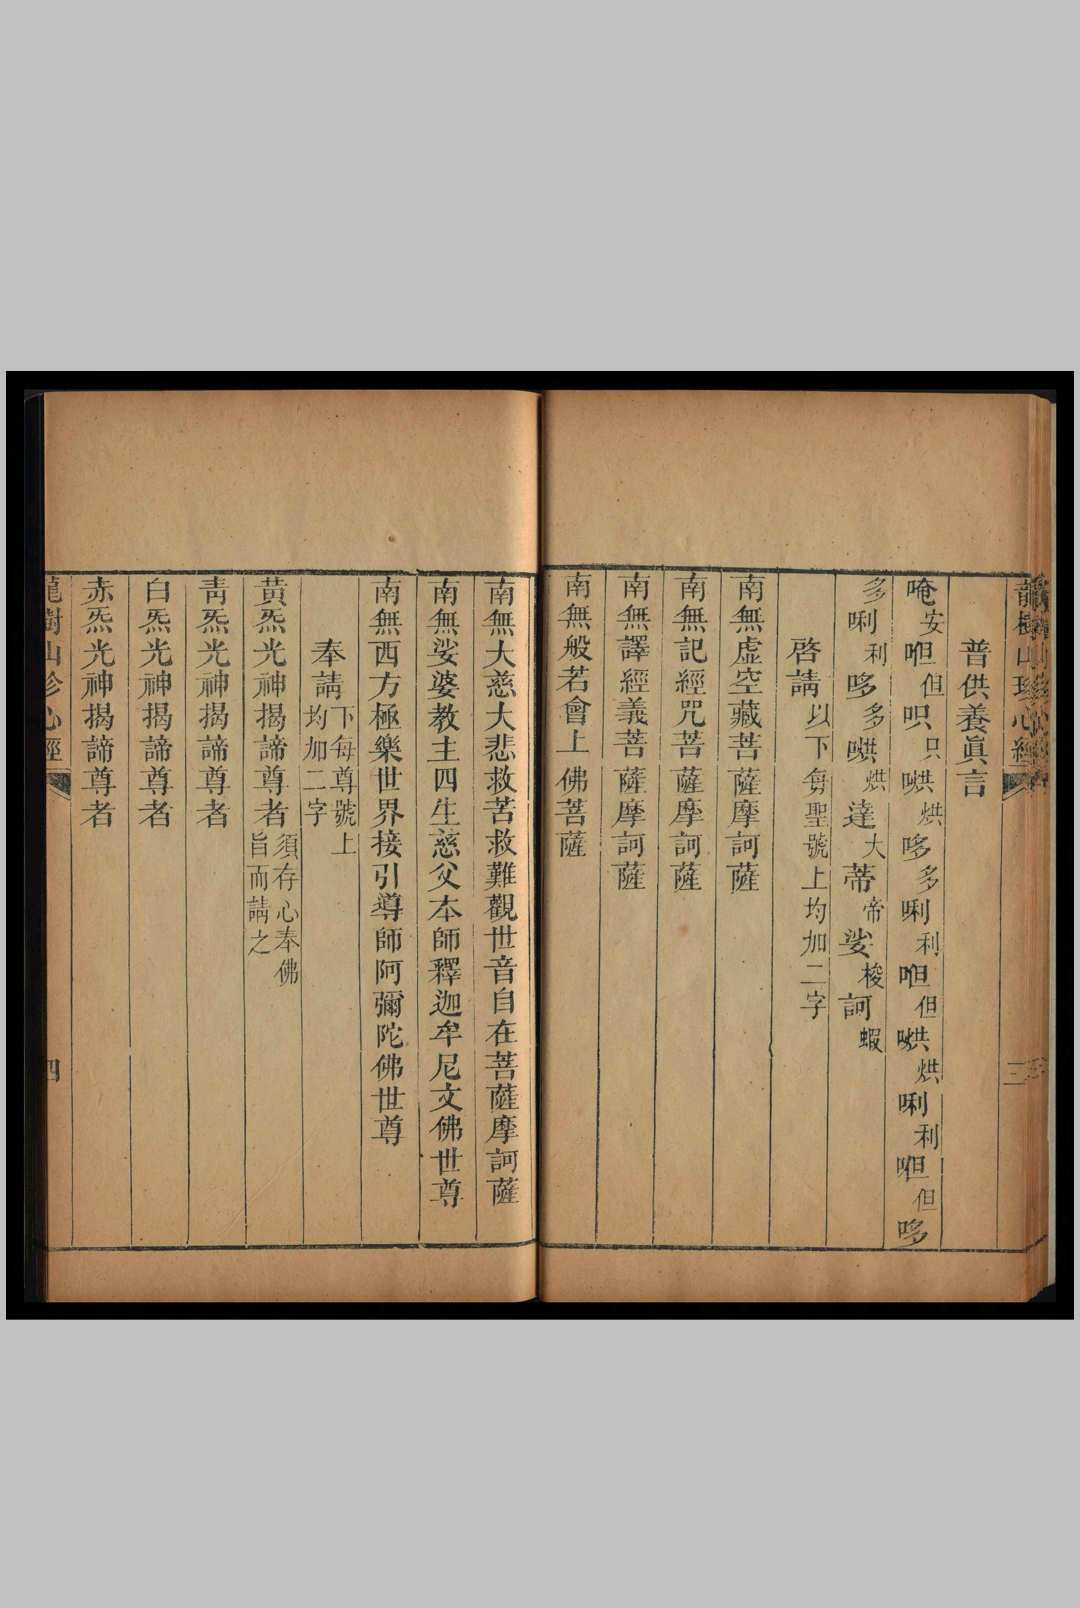 龍樹山珍心經
三
普供養眞言
唵安呾但呎只哄烘哆多唎利呾但哄烘唎利呾但哆
多唎利哆多哄烘達大蒂帝娑梭訶蝦
啓請以下每聖號上均加二字
南無虛空藏菩薩摩訶薩
南無記經咒菩薩摩訶薩
南無譯經義菩薩摩訶薩
南無般若會上佛菩薩
南無大慈大悲救苦救難觀世音自在菩薩摩訶薩
南無娑婆教主四生慈父本師釋迦牟尼文佛世尊
南無西方極樂世界接引導師阿彌陀佛世尊
奉請下每尊號上均加二字
黃炁光神揭諦尊者須存心奉佛旨而請之
靑炁光神揭諦尊者
白炁光神揭諦尊者
赤炁光神揭諦尊者
龍樹山珍心經
四